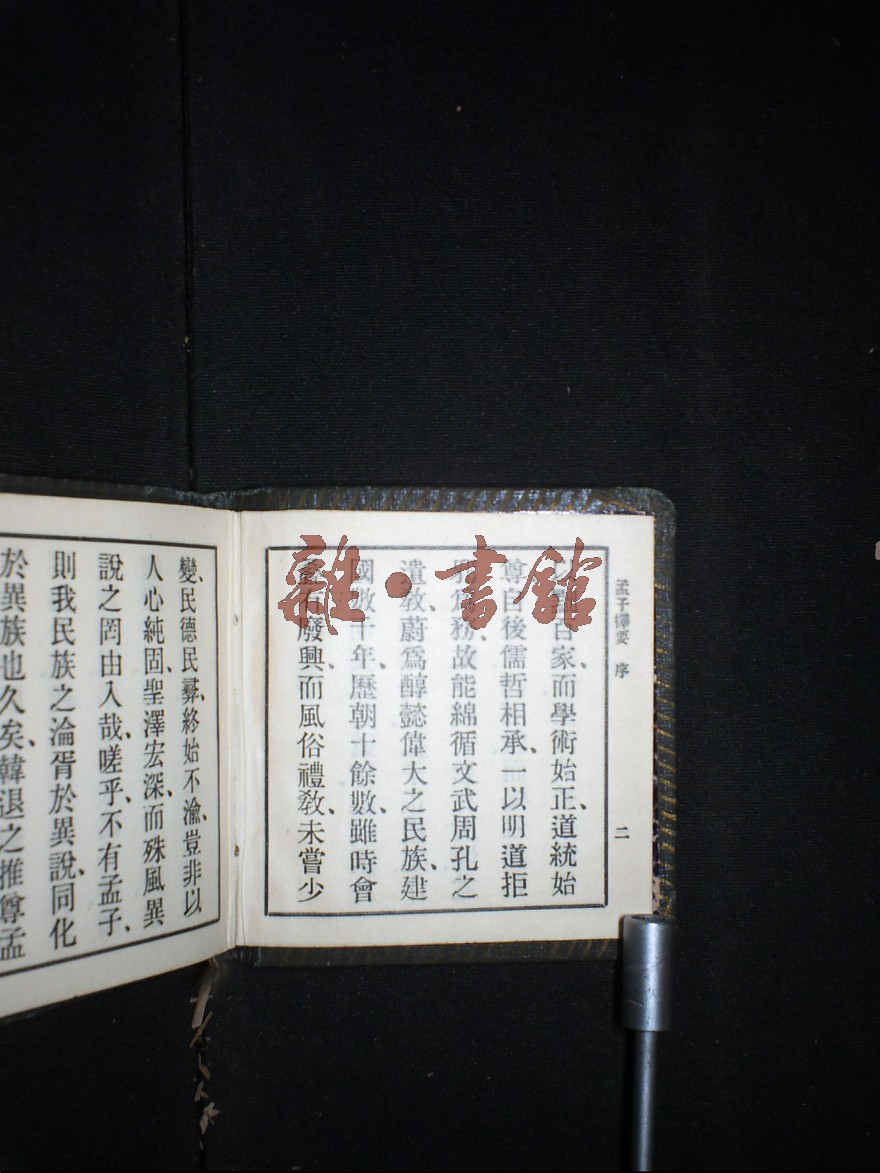 孟子擇要 序 二
百家、而學術始正、道統始
尊自後儒哲相承、一以明道拒
爲務、故能綿循文武周孔之
遺敎、蔚爲醇懿偉大之民族、建
國數千年、歷朝十餘數、雖時會
有廢興、而風俗禮敎、未嘗少
變、民德民彝、終始不渝、豈非以
人心純固、聖澤宏深、而殊風異
說之罔由入哉、嗟乎、不有孟子、
則我民族之淪胥於異說、同化
於異族也久矣、韓退之推尊孟
雜·書館